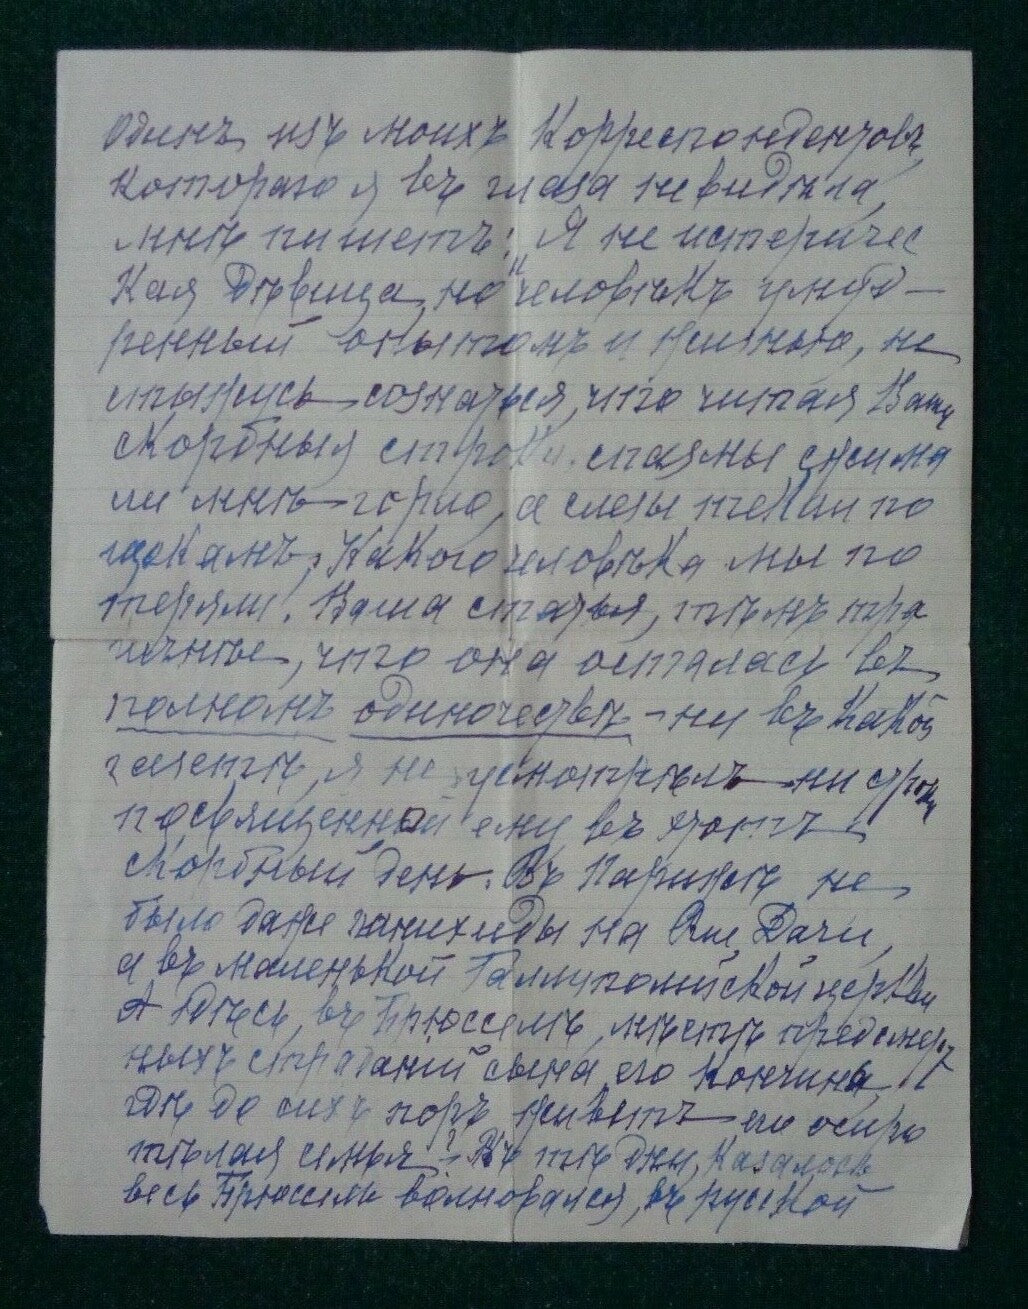 Одинъ изъ моихъ Корреспондентовъ,
котораго я въ глаза не видѣла,
мнѣ пишетъ: „Я не истеричес
кая Дѣвица, но человѣкъ умуд-
ренный опытомъ и жизнью, не
стыжусь сознаться, что читая Ваши
скорбныя строки, спазмы сжима
ли мнѣ горло, а слезы текли по
щекамъ, Какого человѣка мы по
теряли! Ваша статья, тѣмъ тра
гичнѣе, что она осталась въ
полномъ одиночествѣ - ни въ какой
газетѣ, я не усмотрѣлъ ни строки
посвященной ему въ этотъ
скорбный день. Въ Парижѣ не
было даже панихиды на Рю Дарю,
а въ маленькой Галлиполійской церкви
А здѣсь, въ Брюсселѣ, мѣстѣ предсмерт
ныхъ страданій сына, его кончина,
гдѣ до сихъ поръ живетъ его осиро
тѣлая семья? Въ тѣ дни, казалось
весь Брюссель волновался, въ русской